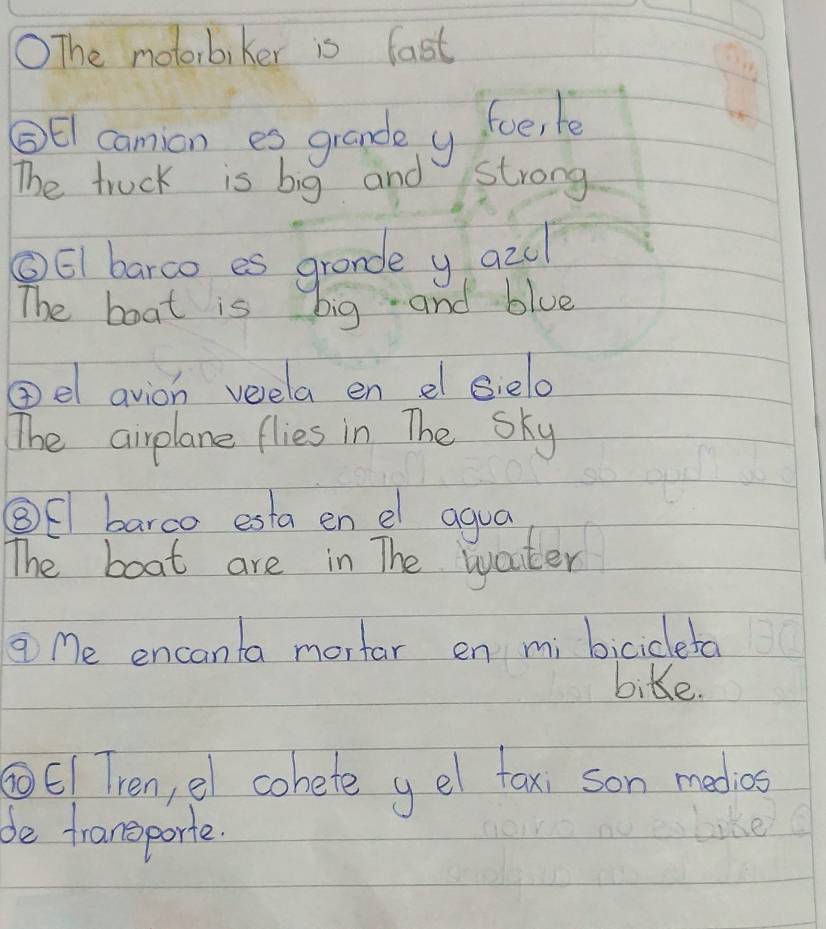 The motorbiker is fast
⑤ El camion es grande y fuerte
The truck is big and strong
⑥ El barco es grande y azul
The boat is big and blue
⑦ el avión veela en el sielo
The airplane flies in The sky
⑧ El barco esta en el agua
The boat are in The water
⑨ Me encanta mortar en mi bicicleta
bike.
⑩ El Tren, el cohete y el taxi son medios
de transporte.